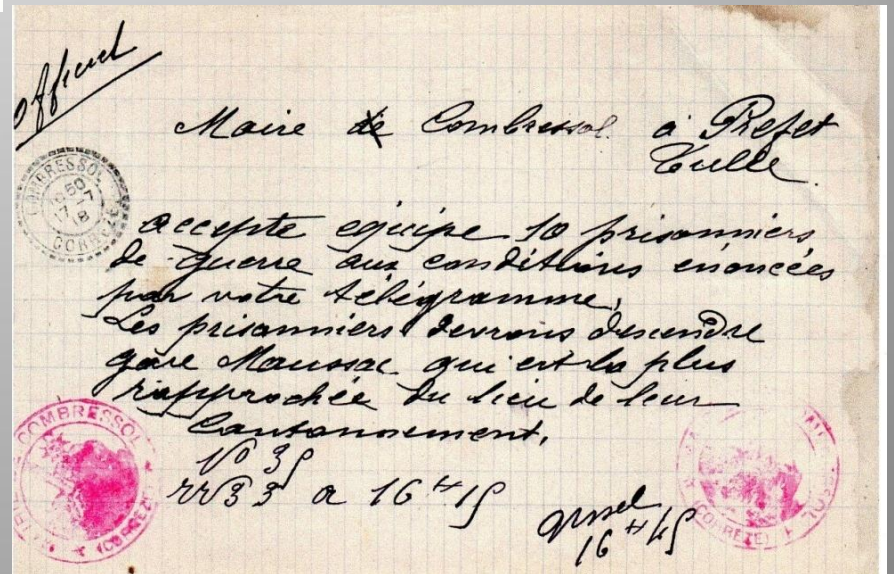 Officiel
Maire de Combressol à Préfet
Tulle
COMBRESSOL
17 - 7
18
CORREZE
accepte equipe 10 prisonniers
de guerre aux conditions énoncées
par votre télégramme,
Les prisonniers devrons descendre
gare Maussac qui est la plus
rapprochée du lieu de leur
Cantonnement,
N° 35
3 3 a 16 H 15
Ussel
16 H 45
COMBRESSOL
(CORREZE)
(CORREZE)